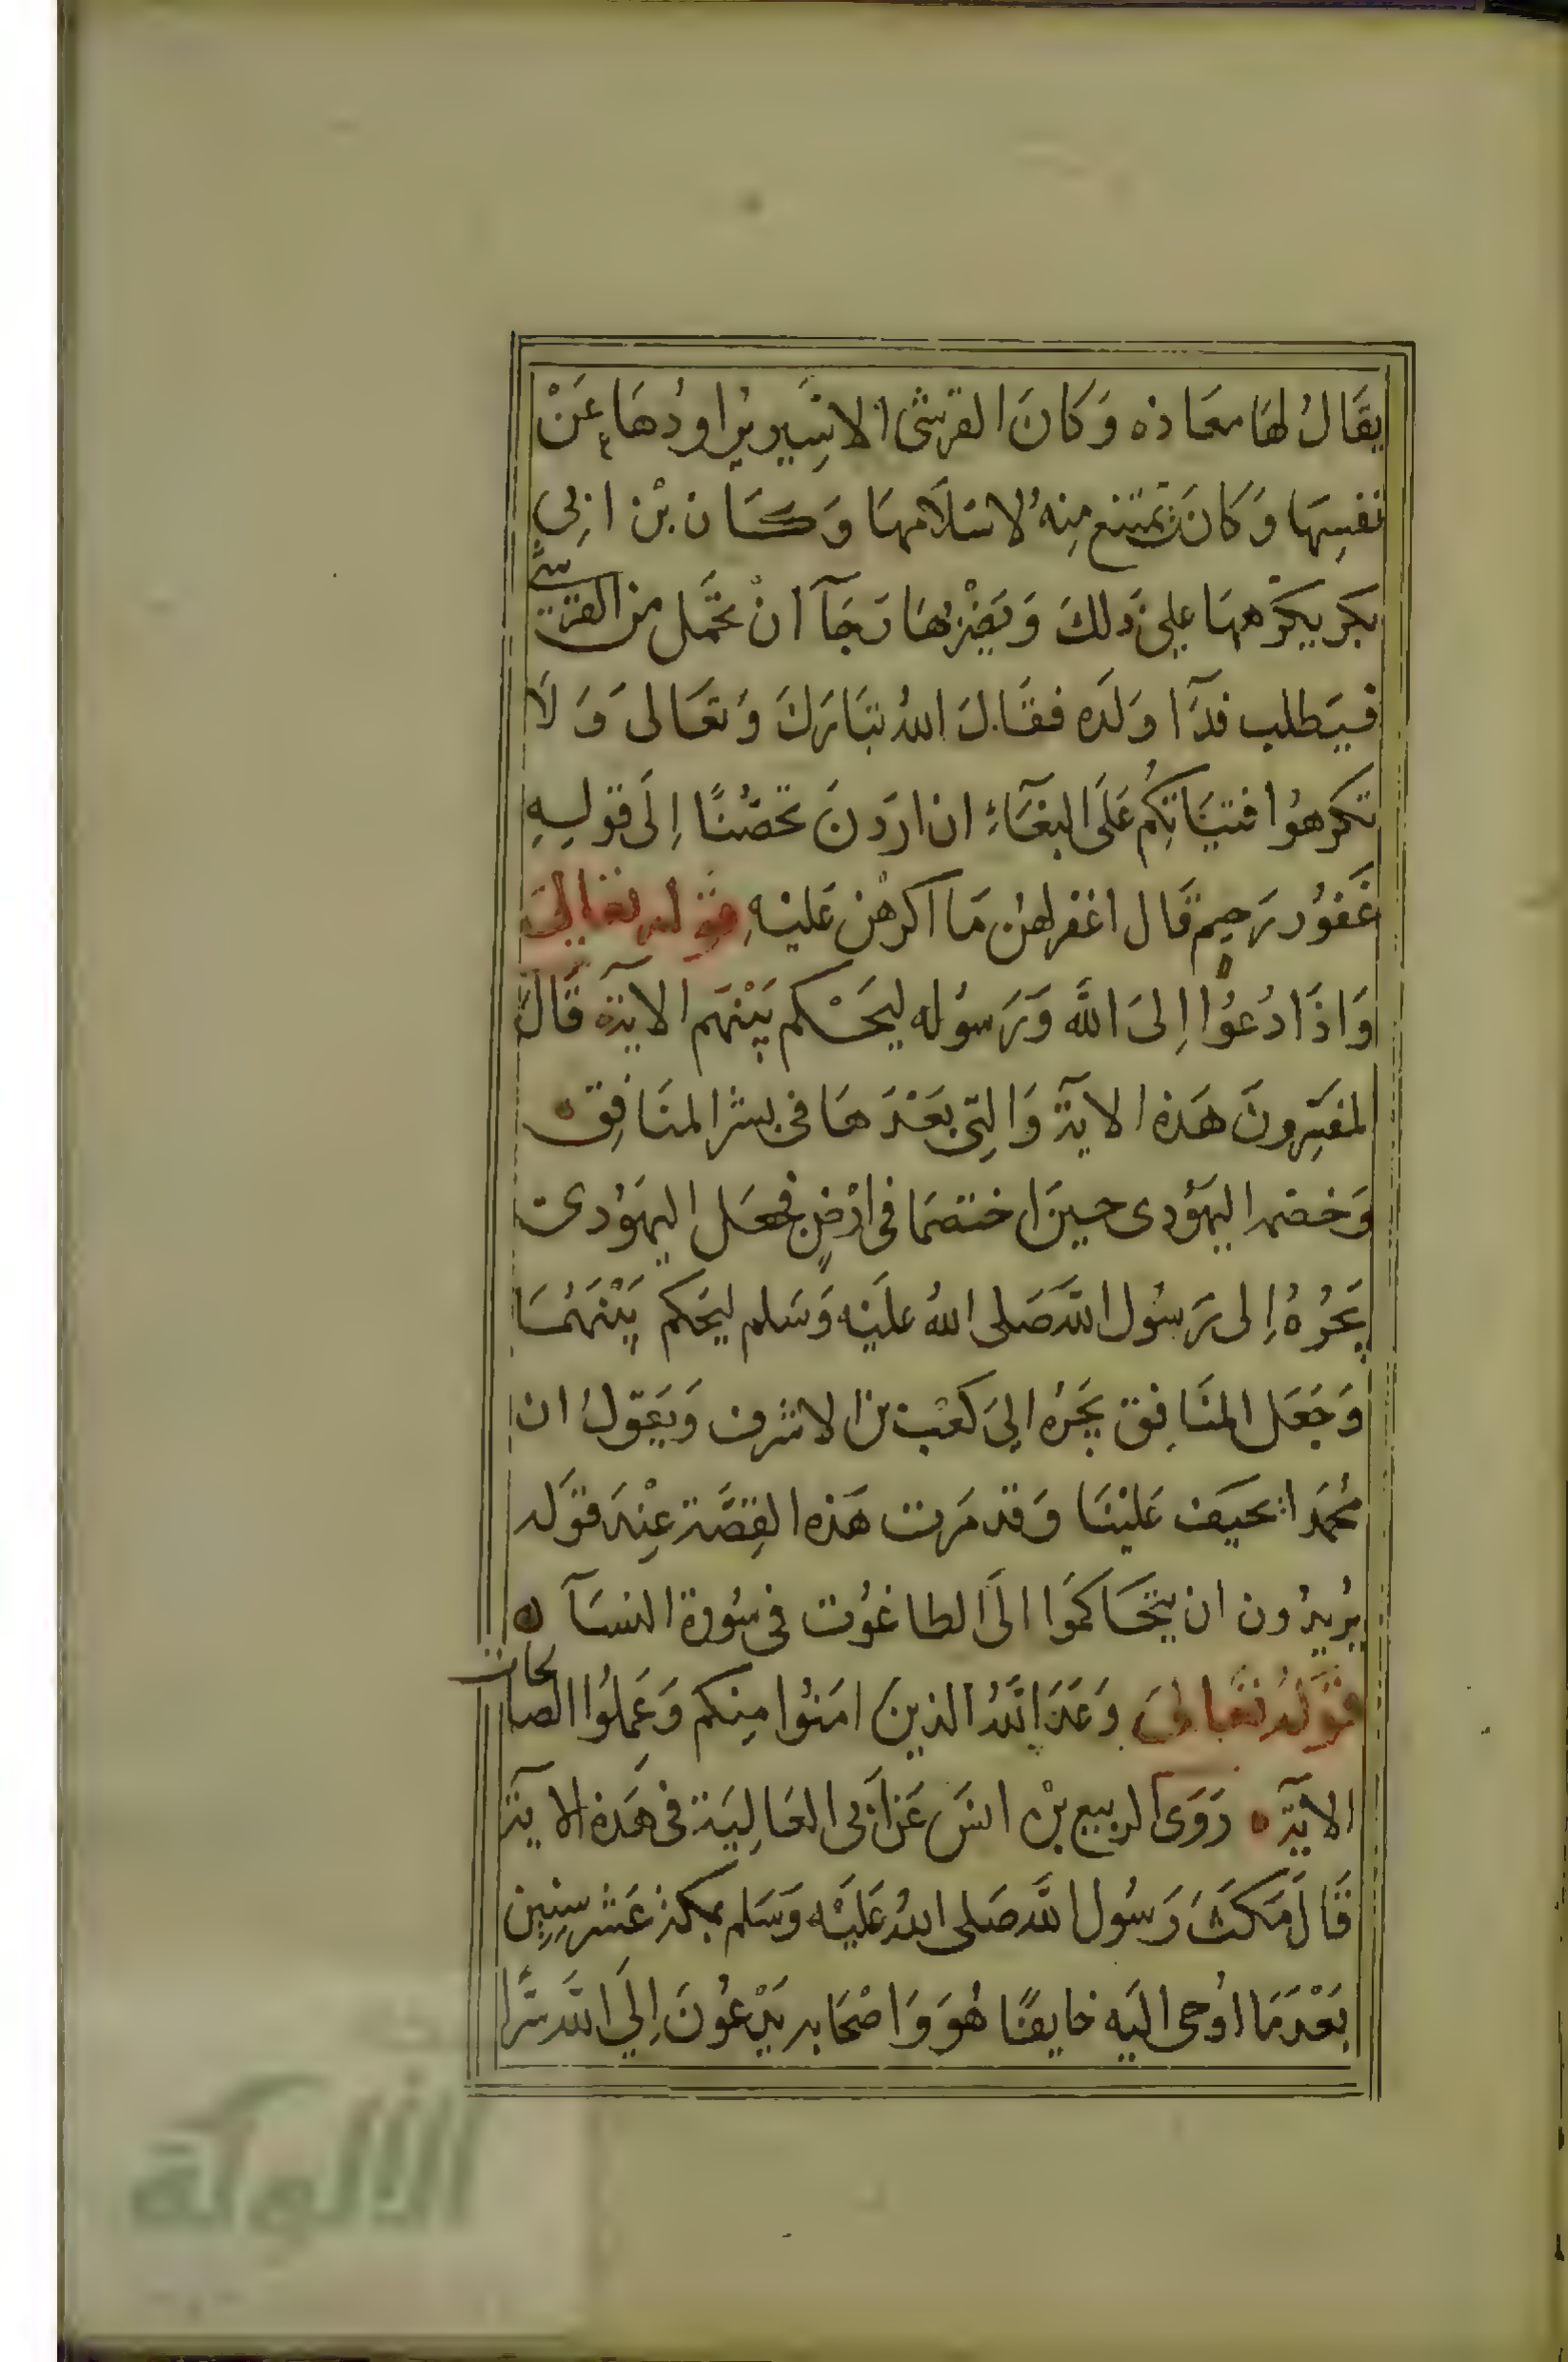 يقَالُ لهَا معَاذه وَكانَ القرشى الاسِير يرُاودُهَا عَنْ
نفسِهَا وَكانَت تمتنع مِنهُ لاسَلَامهَا وَكَان بْن ابِى
بكر يكرههَا علىٰ ذَلكَ وَيَضْربهَا رَجَآ انْ تحَمل من القرشىّ
فيَطلب فدَآ وَلَده فقَالَ اللهُ تبَاركَ وَتعَالى وَلَا
تكرهوُا فتيَاتِكُم عَلَى البغَآءِ ان ارَدنَ تحَصُّنًا اِلَى قولِهِ
غَفوُر رَحِيم قَال اغفر لهن مَا اكرهْن عَليْهِ قوله تعَالىَ
وَاذَا دُعُوا اِلىَ اللَّه وَرَسوُله ليحَكم بَيْنهَم الايَة قَالَ
المفسِّرونَ هَذه الايَة وَالتِى بَعْدَهَا فى بشر المنَافِق
وَخصَمه اليهَوُدى حينَ اختصَمَا فى ارْضٍ فجعَل اليهَوُدى
يَجُرُهُ اِلى رَسوُل اللَّه صَلى اللهُ علَيْه وَسَلم ليحَكم بَيْنهَمُا
وَجَعَل المنَافِق يَجَرُه الىَ كعْب بن الاشرف وَيَقولُ ان
محُمَدا يحَيف عَليْنَا وَقد مَرت هَذه القِصَّة عِنْدَ قَوله
يُريدُون ان يتحَاكمَوا الَى الطاغوُت فى سُورة النسَآ
قَوَلهُ تعَالىَ وَعَدَ اللَّهُ الذينَ امَنوُا مِنكم وَعَمِلوُا الصالحات
الايَة رَوَى الربيع بْن انسَ عَن ابى العَالِيَة فى هَذه الايَة
قَالَ مَكثَ رَسُول اللَّه صَلى اللهُ عَلَيْه وَسَلم بمكة عَشر سِنِين
بَعْدَ مَا اوُحى اليَه خايفًا هُوَ وَاصْحَابه يَدْعُونَ اِلَى اللَّه سَّرا
الألوكة